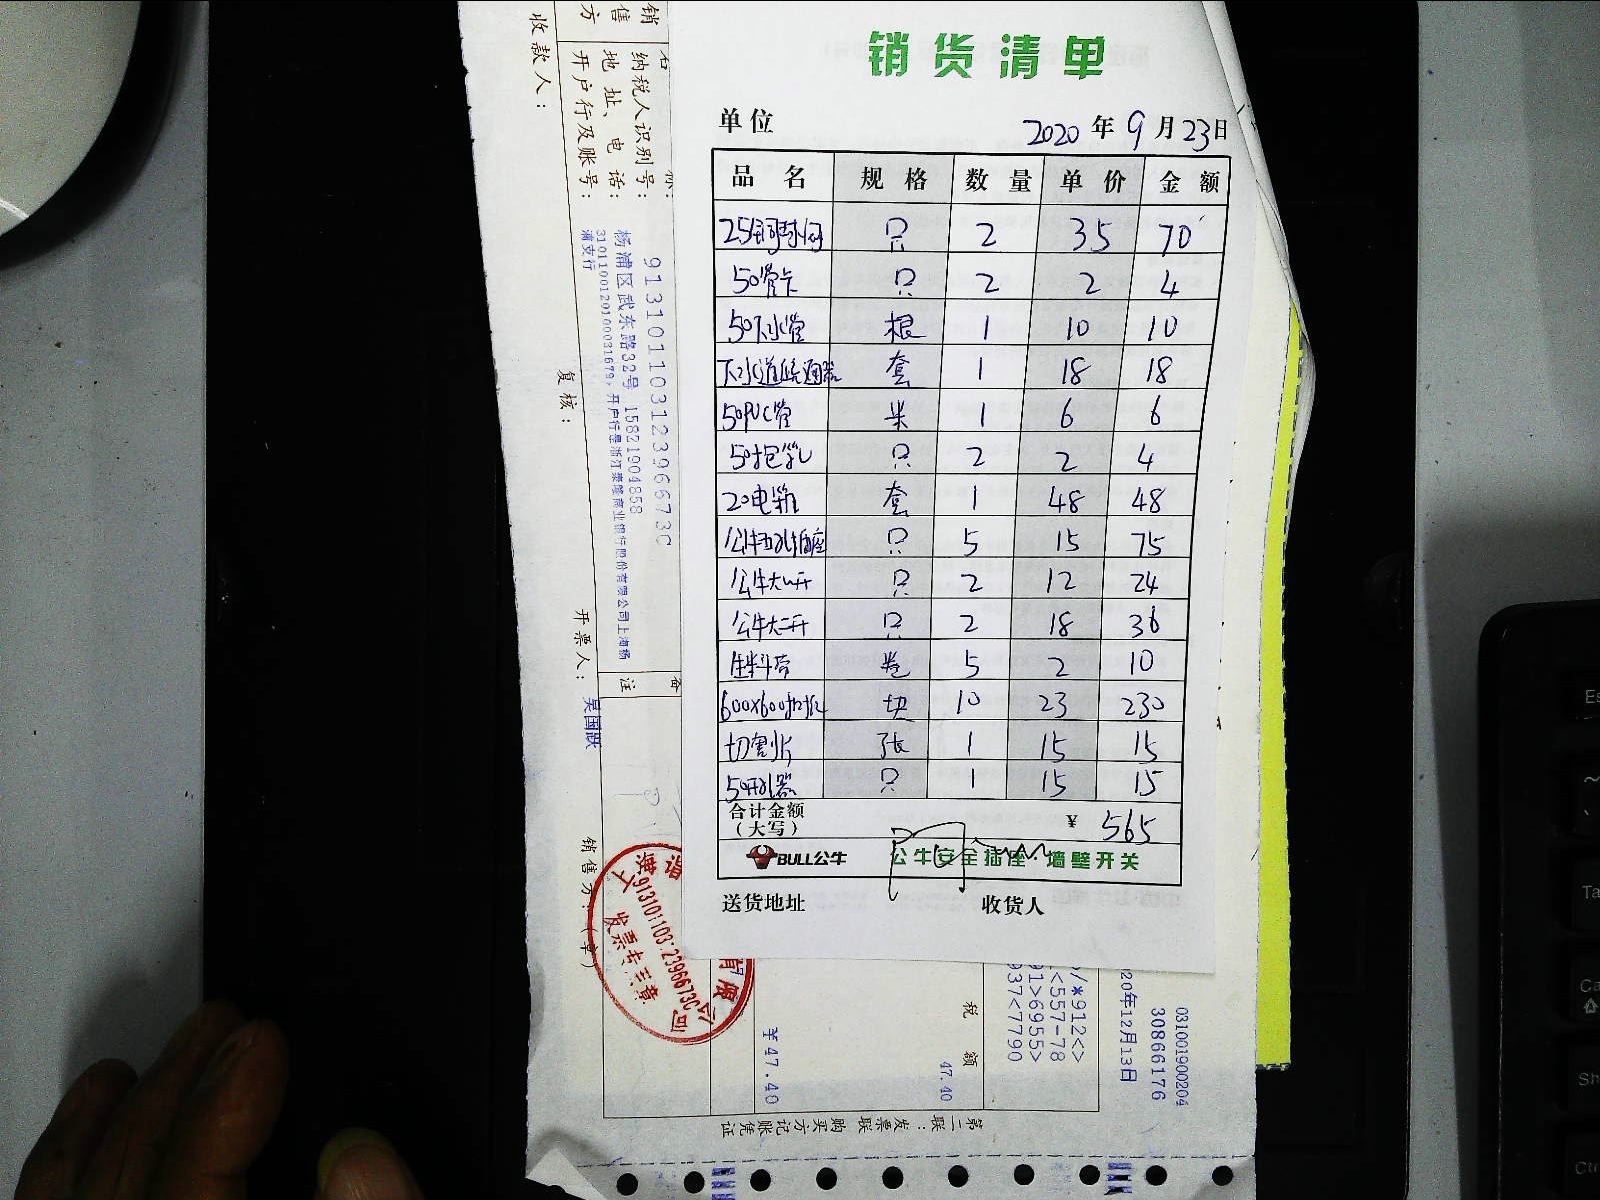 销货清单
单位 2020 年 9 月 23 日
品名 规格 数量 单价 金额
25铜球阀 只 2 35 70
50管卡 只 2 2 4
50下水管 根 1 10 10
下水道疏通器 套 1 18 18
50PVC管 米 1 6 6
只 2 2 4
20电箱 套 1 48 48
公牛五孔插座 只 5 15 75
公牛大一开 只 2 12 24
公牛大二开 只 2 18 36
生料带 卷 5 2 10
600x600扣板 块 10 23 230
切割片 张 1 15 15
50开孔器 只 1 15 15
合计金额
(大写) ¥ 565
BULL公牛 公牛安全插座·墙壁开关
送货地址 收货人
销售方
名称:
纳税人识别号: 91310110312396673C
地址、电话: 杨浦区武东路32号 15821904858
开户行及账号: 3101100120100031679, 开户行是浙江泰隆商业银行股份有限公司上海杨
浦支行
收款人:
复核:
开票人: 吴国跃
销售方:(章)
备注
发票专用章
91310110312396673C
有限公司
税额
47.40
¥47.40
/*912<>
<557-78
91>6955>
937<7790
031001900204
30866176
20年12月13日
第二联:发票联 购买方记账凭证